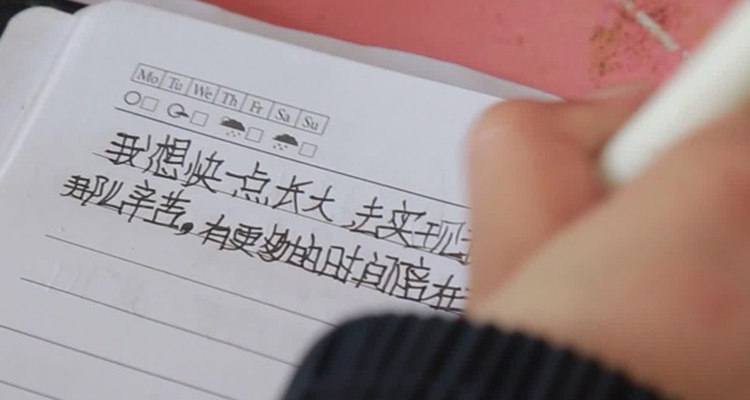 Mo Tu We Th Fr Sa Su
我想快一点长大 去实现
那么辛苦,有更多的时间陪在